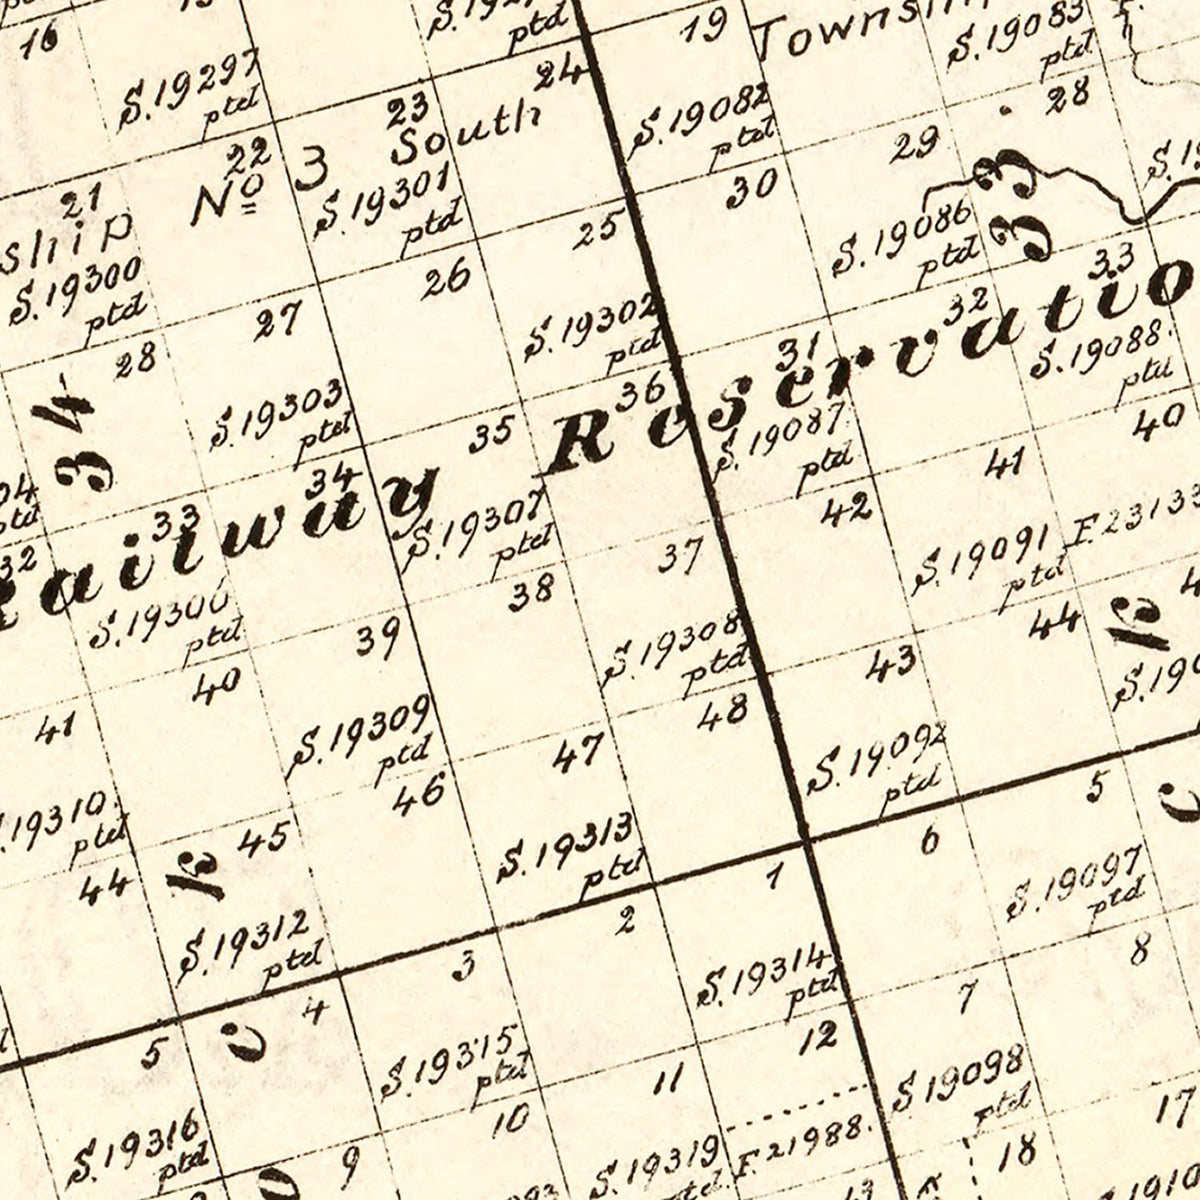 16
19
Township
S.19083
ptd
ptd
S.19297
ptd
24
28
23
South
S.19082
ptd
22
29
No 3
S.19301
ptd
30
33
21
ship
25
S.19086
ptd
S.19300
ptd
26
33
27
S.19302
ptd
32
28
31
S.19088
ptd
36
Railway Reservatio
34
S.19303
ptd
35
S.19087
ptd
40
34
41
33
S.19307
ptd
42
32
S.19091
ptd
F.23133
37
S.19306
ptd
38
44
B
39
S.19308
ptd
43
40
48
41
S.19309
ptd
47
S.19092
ptd
46
5
C
S.19310
ptd
45
B
6
44
S.19313
ptd
1
S.19097
ptd
2
S.19312
ptd
3
S.19314
ptd
8
4
7
5
C
12
S.19315
ptd
11
S.19098
ptd
10
17
S.19316
ptd
S.19319
ptd
F.21988
18
9
D
13